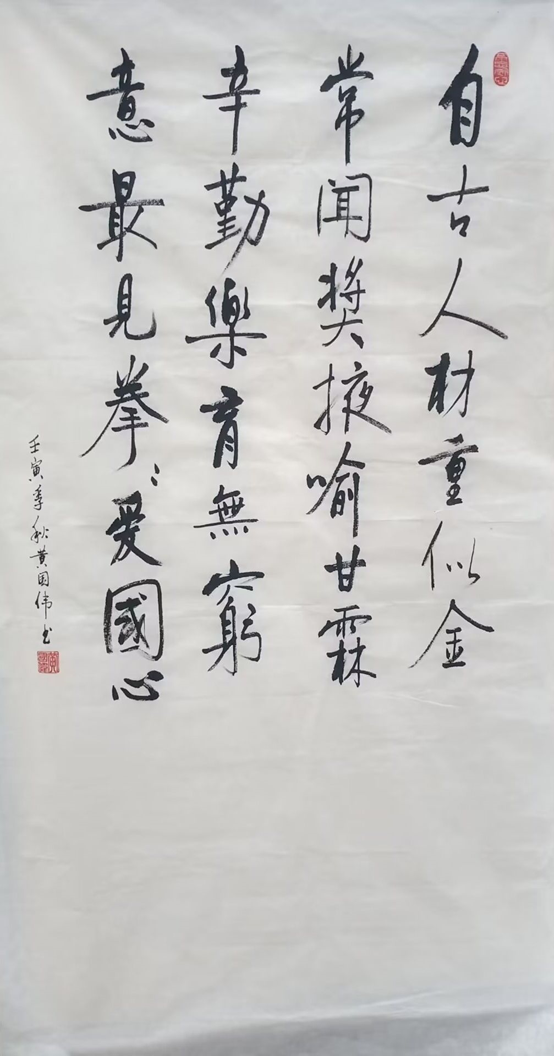 自古人材重似金
常闻奖掖喻甘霖
辛勤樂育無窮
意最見拳〻愛國心
壬寅季秋黄国伟书